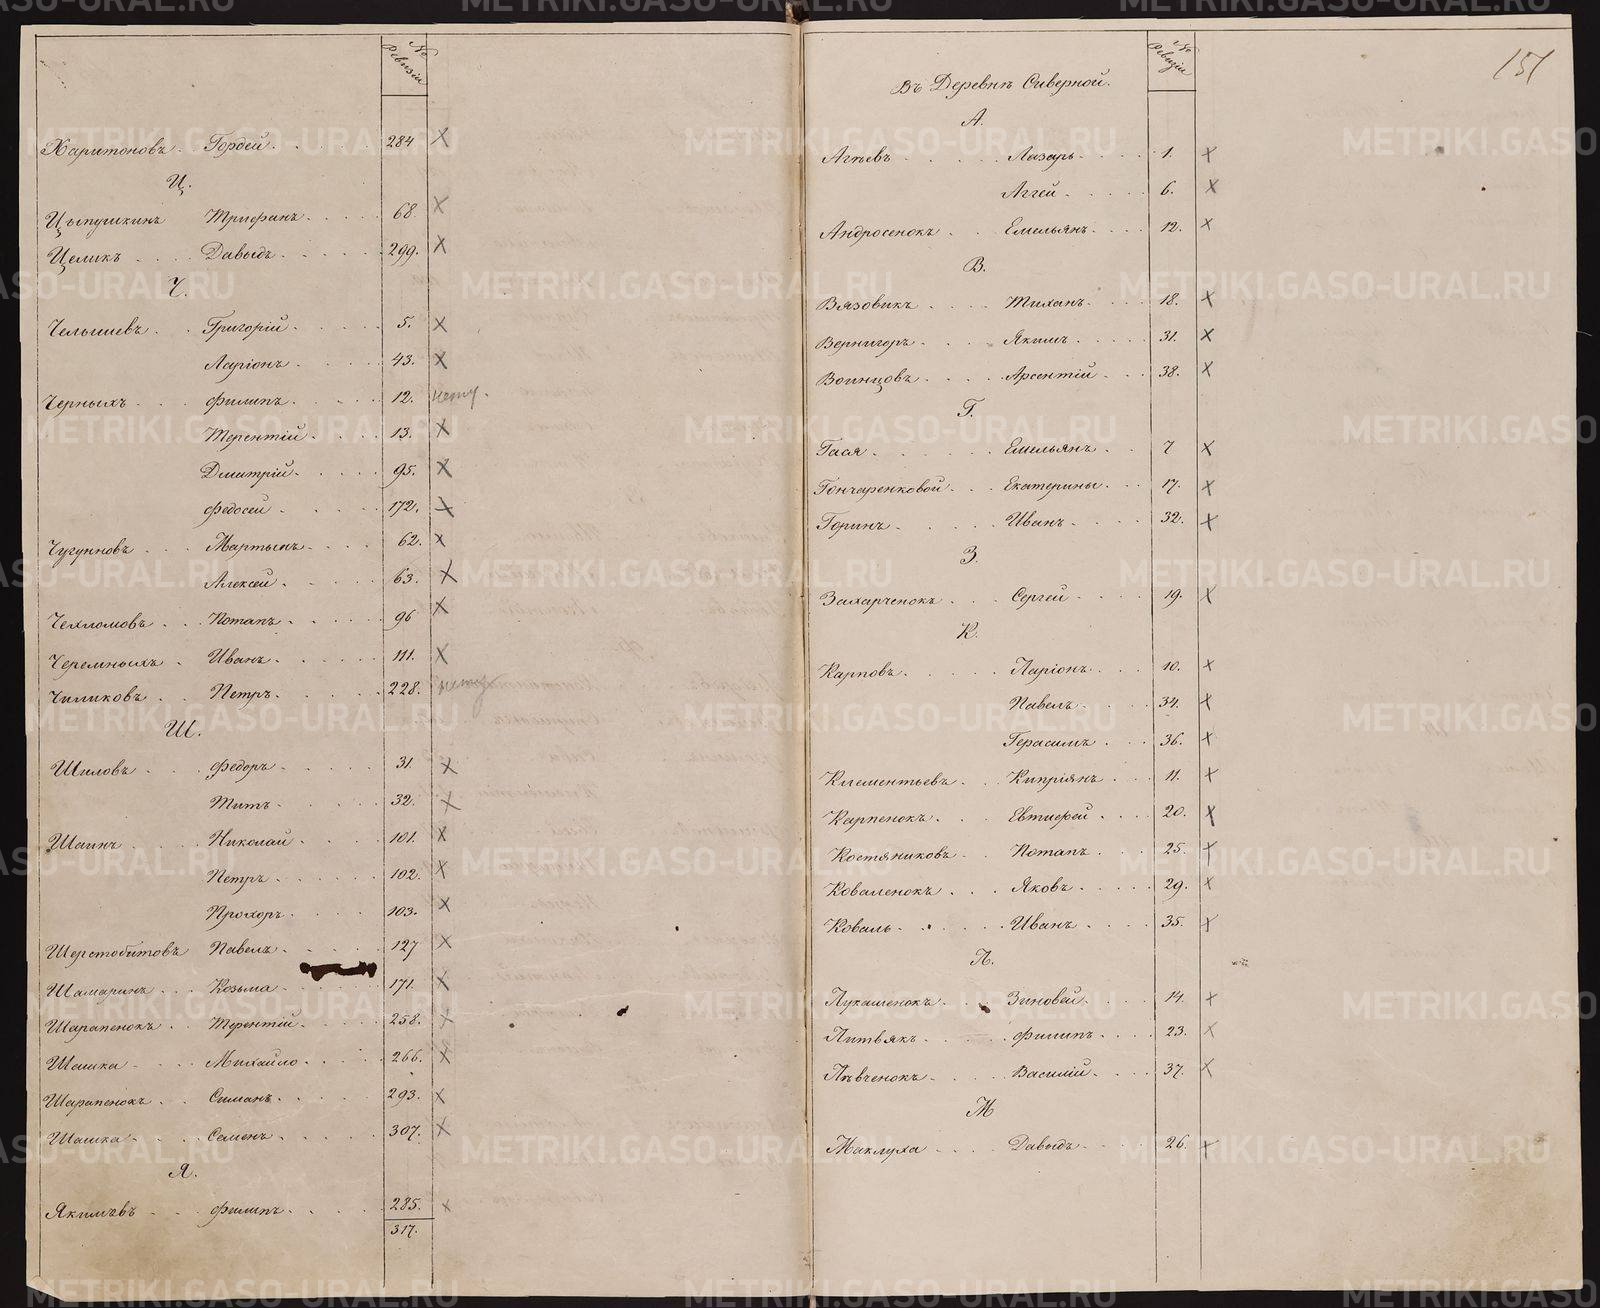 № Ревизіи
Харитоновъ. Гордей. 284
Ц.
Цыпушкинъ Трифанъ. 68.
Целикъ. Давыдъ. 299.
Ч.
Челышевъ. Григорій. 5.
Ларіонъ. 43.
Черныхъ. Филипъ. 12. нету.
Терентій. 13.
Дмитрій. 95.
Федосей. 172.
Чугунновъ. Мартынъ. 62.
Алексей. 63.
Чехломовъ. Потапъ. 96
Черемныхъ. Иванъ. 111.
Чиликовъ. Петръ. 228. нету
Ш.
Шиловъ. Федоръ. 31.
Титъ. 32.
Шаинъ. Николай. 101.
Петръ. 102.
Прохоръ. 103.
Шерстобитовъ Павелъ. 127
Шамаринъ. Козьма. 171.
Шарапенокъ. Терентій. 258.
Шашка. Михайло. 266.
Шарапенокъ. Симанъ. 293.
Шашка. Семенъ. 307.
Я.
Якимовъ. Филипъ. 285.
317.
151
№ Ревизіи
Въ Деревнѣ Сиверной.
А.
Агѣевъ. Лазарь. 1.
Аггей. 6.
Андросенокъ. Емельянъ. 12.
В.
Вязовикъ. Тиханъ. 18.
Вернигоръ. Якимъ. 31.
Воинцовъ. Арсентій. 38.
Г.
Гася. Емельянъ. 7
Гончаренковой. Екатерины. 17.
Горинъ. Иванъ. 32.
З.
Захарченокъ. Сергей. 19.
К.
Карповъ. Ларіонъ. 10.
Павелъ. 34.
Герасимъ. 36.
Клементьевъ. Кипріянъ. 11.
Карпенокъ. Евтифей. 20.
Костяниковъ. Потапъ. 25.
Коваленокъ. Яковъ. 29.
Коваль. Иванъ. 35.
Л.
Лукашенокъ. Зиновей. 14.
Литвякъ. Филипъ. 23.
Лѣвченокъ. Василій. 37.
М
Маклуха Давыдъ. 26.